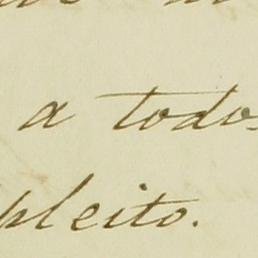 a todos
pleito.